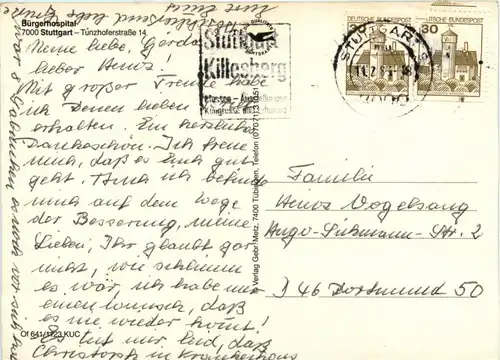 Bürgerhospital
7000 Stuttgart – Tünzhoferstraße 14
Meine liebe, Gerda
lieber Heinz!
Mit großer Freude habe
ich Deinen lieben
erhalten. Ein herzliches
Dankeschön. Ich freue
mich, daß es Euch gut
geht. Auch ich befinde
mich auf dem Wege
der Besserung, meine
Lieben, Ihr glaubt gar
nicht, wie schlimm
es war, ich habe nur
einen Wunsch, daß
es nie wieder kommt!
Es tut mir leid, daß
Christoph im Krankenhaus
Of 641/1123 KUC
© Verlag Gebr. Metz, 7400 Tübingen, Telefon (07071)
Stuttgart
Killesberg
DEUTSCHE BUNDESPOST
30
DEUTSCHE BUNDESPOST
30
STUTTGART
Familie
Heinz Vogelsang
Str. 2
D 46 Dortmund 50